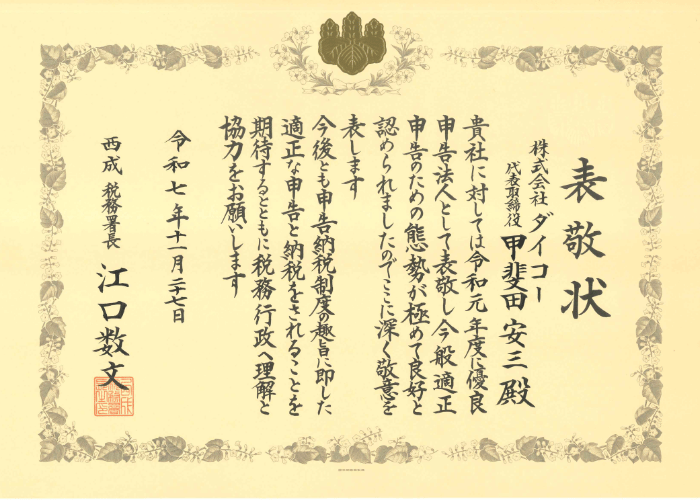 表敬状
株式会社 ダイコー
代表取締役 甲斐田 安三 殿
貴社に対しては令和元年度に優良
申告法人として表敬し今般適正
申告のための態勢が極めて良好と
認められましたのでここに深く敬意を
表します
今後とも申告納税制度の趣旨に即した
適正な申告と納税をされることを
期待するとともに税務行政へ理解と
協力をお願いします
令和七年十一月二十七日
西成 税務署長 江口 数文